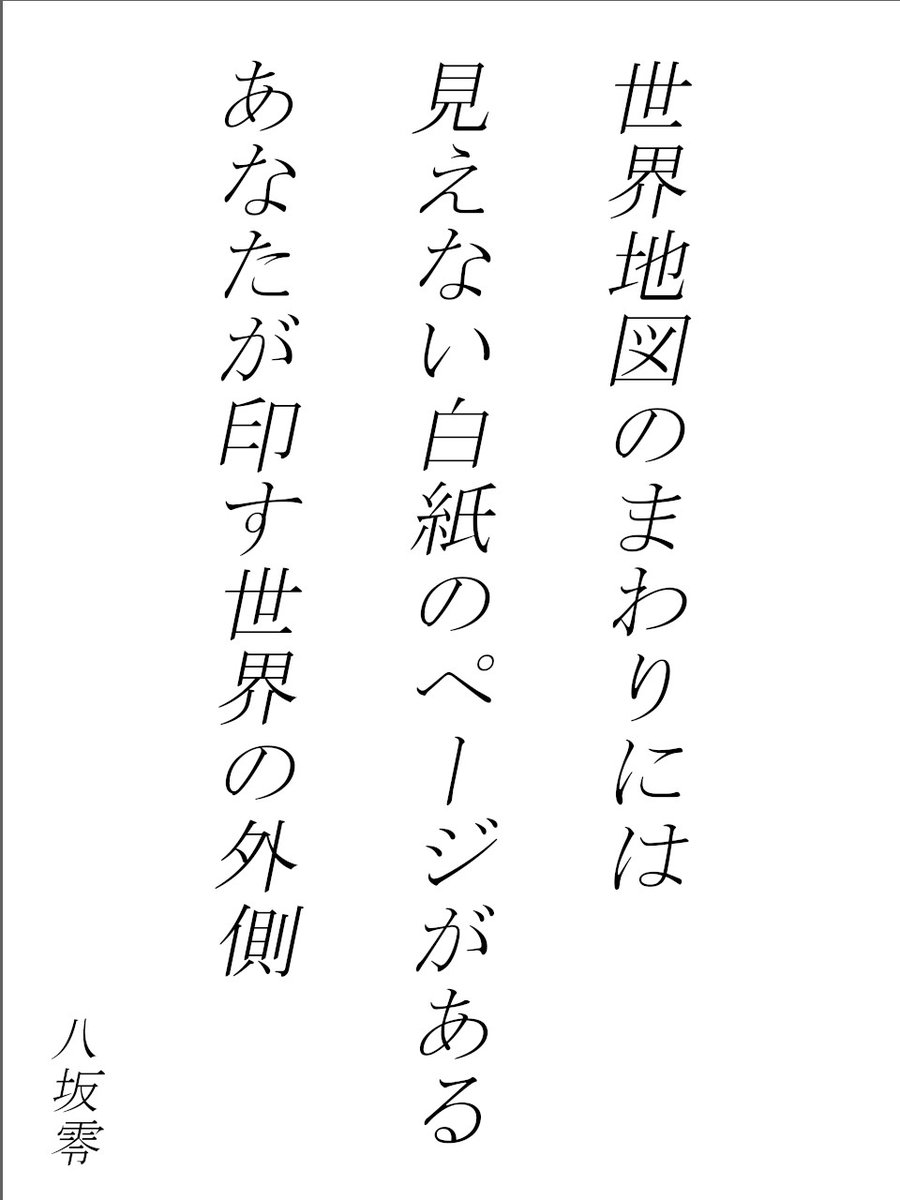 世界地図のまわりには
見えない白紙のページがある
あなたが印す世界の外側
八坂零